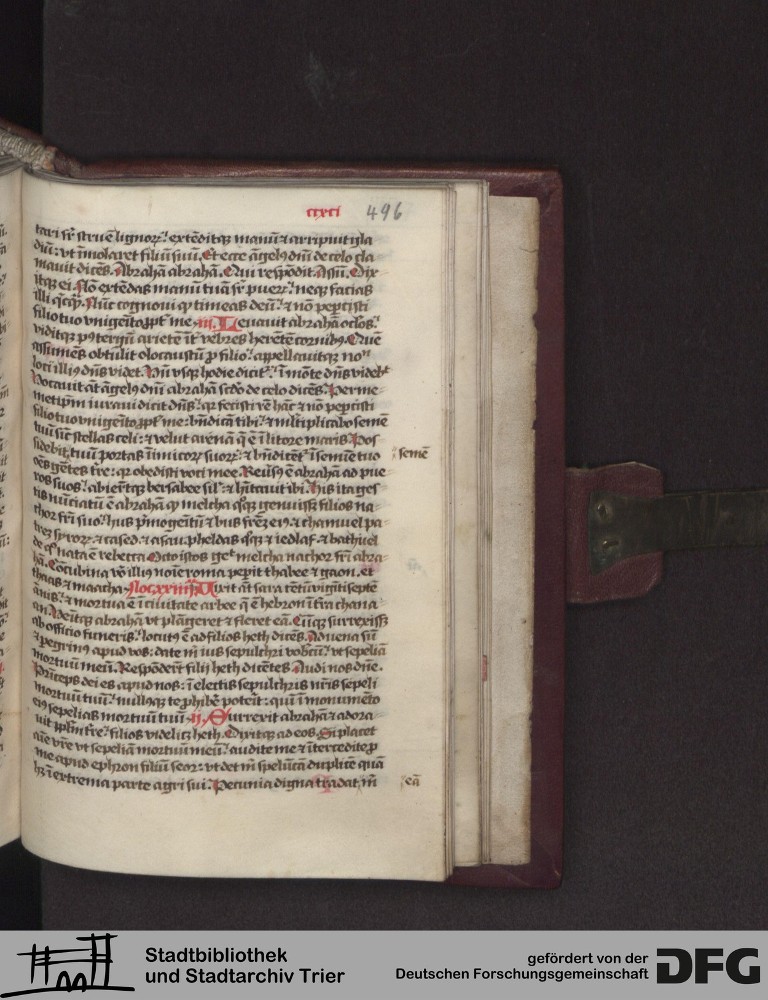 ccxci 496
tari sr̄ struē lignoꝝ: extēditqꝫ manū ⁊ arripuit gla
diū: vt īmolaret filiū suū. Et ecce āgelꝰ dn̄i de celo cla
mauit dicēs. Abrahā abrahā. Qui respōdit. Assū. Dix
itqꝫ ei. Nō extēdas manū tuā sr̄ pueꝝ: neqꝫ facias
illi qͥcqͣꝫ. Nūc cognoui qꝙ timeas deū: ⁊ nō peꝑcisti
filio tuo vnigēito ꝓpt̄ me. iii. Leuauit abrahā oc̄los:
viditqꝫ pꝰ tergū arietē īt̄ veꝑres herētē cornibꝰ. Quē
assumēs obtulit olocaustū ꝓ filio: appellauitqꝫ noⁿ
loci illiꝰ dn̄s videt. Vn̄ vsqꝫ hodie dicit̄: ī mōte dn̄s videbᵗ
Vocauit āt āgelꝰ dn̄i abrahā scd̄o de celo dicēs. Per me
metip̄m iuraui dicit dn̄s: qꝛ fecisti rē hāc ⁊ nō peꝑcisti
filio tuo vnigēito ꝓpt̄ me: bn̄dicā tibi: ⁊ ml̄tiplicabo semē
tuū sic̄ stellas celi: ⁊ velut arenā q̄ ē ī litore maris. Pos
sidebit tuū portas īimicoꝝ suoꝝ: ⁊ bn̄dicēt̄ ī semīe tuo
semē
oēs gētes t̄re: qꝛ obedisti voci mee. Reūsꝰ ē abrahā ad pue
ros suos: abiert̄qꝫ bersabee sil̄: ⁊ hītauit ibi. His ita ges
tis nūciatū ē abrahā qꝙ melcha qͦqꝫ genuisꝫ filios na
chor fr̄i suo: hus pͥmogeītū ⁊ bus frēꝫ eiꝰ: ⁊ chamuel pa
treꝫ siroꝝ: ⁊ cased: ⁊ asau. pheldas qͦqꝫ ⁊ iedlaf: ⁊ bathuel
de qͦ nata ē rebecca. Octo istos geᵗ melcha nachor fr̄i abra
hā. Cōcubina vō illiꝰ noīe roma peꝑit thabee ⁊ gaon. et
thaas ⁊ maacha. Vixit āt sara cētū vigīti septē
ānis: ⁊ mortua ē ī ciuitate arbee q̄ ē hebron ī t̄ra chana
an. Veītqꝫ abrahā vt plāgeret ⁊ fleret eā. Cūqꝫ surrexisꝫ
ab officio funeris: locutꝰ ē ad filios heth dicēs. Aduena sū
⁊ peꝑgrinꝰ apud vos: date m̄ ius sepulchri vobcū: vt sepeliā
mortuū meū. Respōdert̄ filij heth dicētes. Audi nos dn̄e.
Prīceps dei es apud nos: ī electis sepulchris nr̄is sepeli
mortuū tuū: nullusqꝫ te ꝓhibē poteit: quī ī monumēto
eiꝰ sepelias mortuū tuū. ii. Surrexit abrahā ⁊ adora
uit ppl̄m t̄re: filios videlicꝫ heth. Dixitqꝫ ad eos. Si placet
aīe vr̄e vt sepeliā mortuū meū: audite me ⁊ ītercedite ꝓ
me apud ephron filiū seor: vt det m̄ speluncā duplicē quā
hꝫ ī extrema parte agri sui. Pecunia digna tradat m̄
eā
Stadtbibliothek
und Stadtarchiv Trier
gefördert von der
Deutschen Forschungsgemeinschaft
DFG